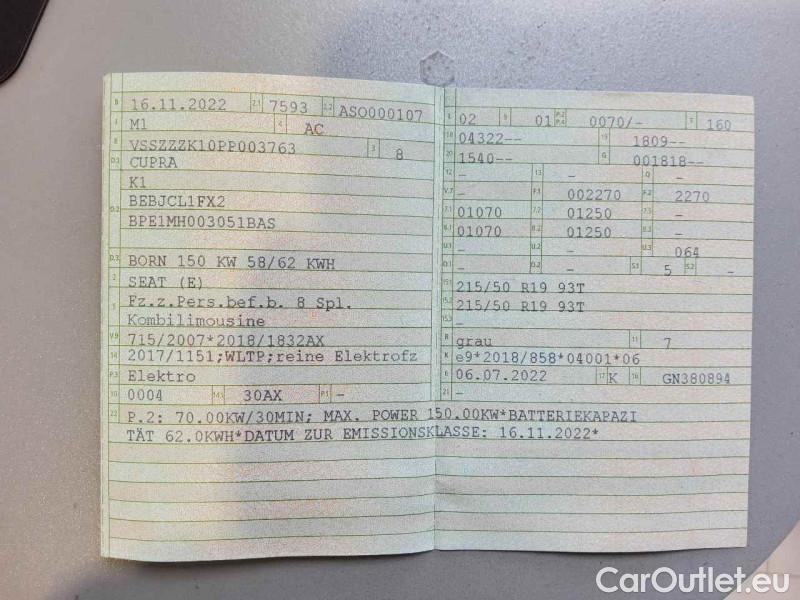 B 16.11.2022 2.1 7593 2.2 ASO000107
J M1 4 AC
E VSSZZZK10PP003763 3 8
D.1 CUPRA
K1
D.2 BEBJCL1FX2
BPE1MH003051BAS
D.3 BORN 150 KW 58/62 KWH
2 SEAT (E)
5 Fz.z.Pers.bef.b. 8 Spl.
Kombilimousine
V.9 715/2007*2018/1832AX
14 2017/1151;WLTP;reine Elektrofz
P.3 Elektro
10 0004 14.1 30AX P.1 -
22 P.2: 70.00KW/30MIN; MAX. POWER 150.00KW*BATTERIEKAPAZI
TÄT 62.0KWH*DATUM ZUR EMISSIONSKLASSE: 16.11.2022*
L 02 9 01 P.2 P.4 0070/- T 160
18 04322-- 19 1809--
20 1540-- G 001818--
12 - 13 - Q -
V.7 - F.1 002270 F.2 2270
7.1 01070 7.2 01250 7.3 -
8.1 01070 8.2 01250 8.3 -
U.1 - U.2 - U.3 064
O.1 - O.2 - S.1 5 S.2 -
15.1 215/50 R19 93T
15.2 215/50 R19 93T
15.3 -
R grau 11 7
K e9*2018/858*04001*06
6 06.07.2022 17 K 16 GN380894
21 -
CarOutlet.eu